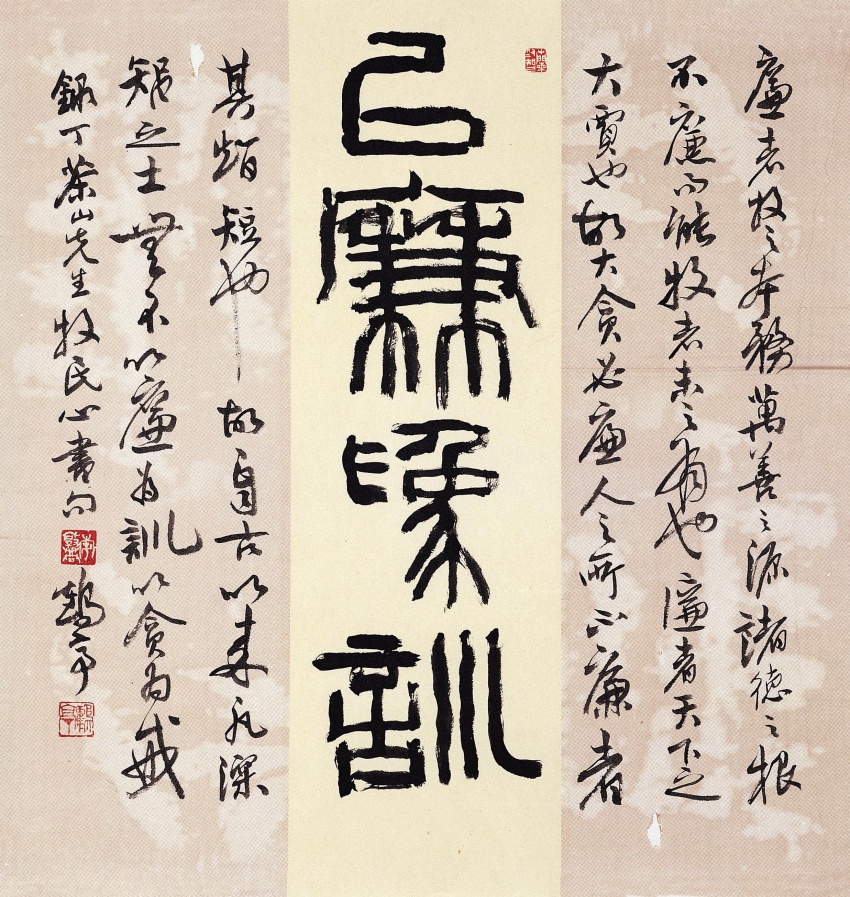 廉者牧之本務萬善之源諸德之根
不廉而能牧者未之有也廉者天下之
大賈也故大貪必廉人之所不廉者
以廉爲訓
其智短也故自古以來凡深
智之士無不以廉為訓以貪為戒
錄丁茶山先生牧民心書句
鶴亭